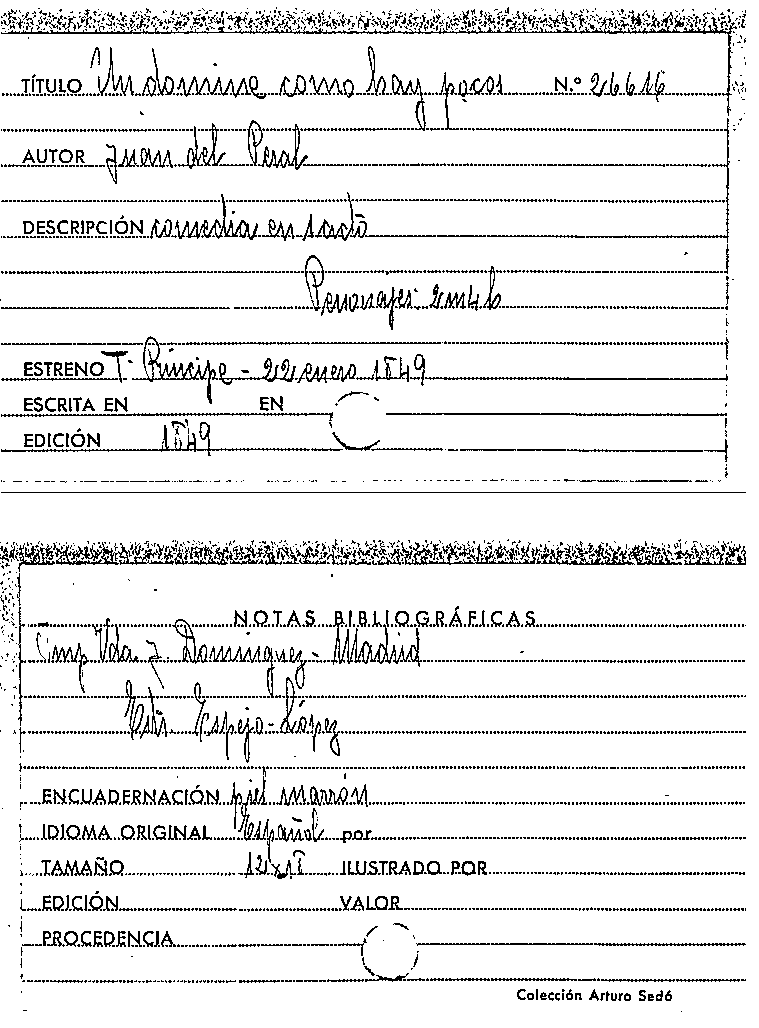 TÍTULO Un domine como hay pocos N.º 26616
AUTOR Juan del Peral
DESCRIPCIÓN comedia en 1 acto
Personajes 2m4h
ESTRENO T. Príncipe - 22 enero 1849
ESCRITA EN EN
EDICIÓN 1849
NOTAS BIBLIOGRÁFICAS
Imp Vda. J. Dominguez - Madrid
Edit. Espejo-López
ENCUADERNACIÓN piel marrón
IDIOMA ORIGINAL Español por
TAMAÑO 12x18 ILUSTRADO POR
EDICIÓN VALOR
PROCEDENCIA
Colección Arturo Sedó